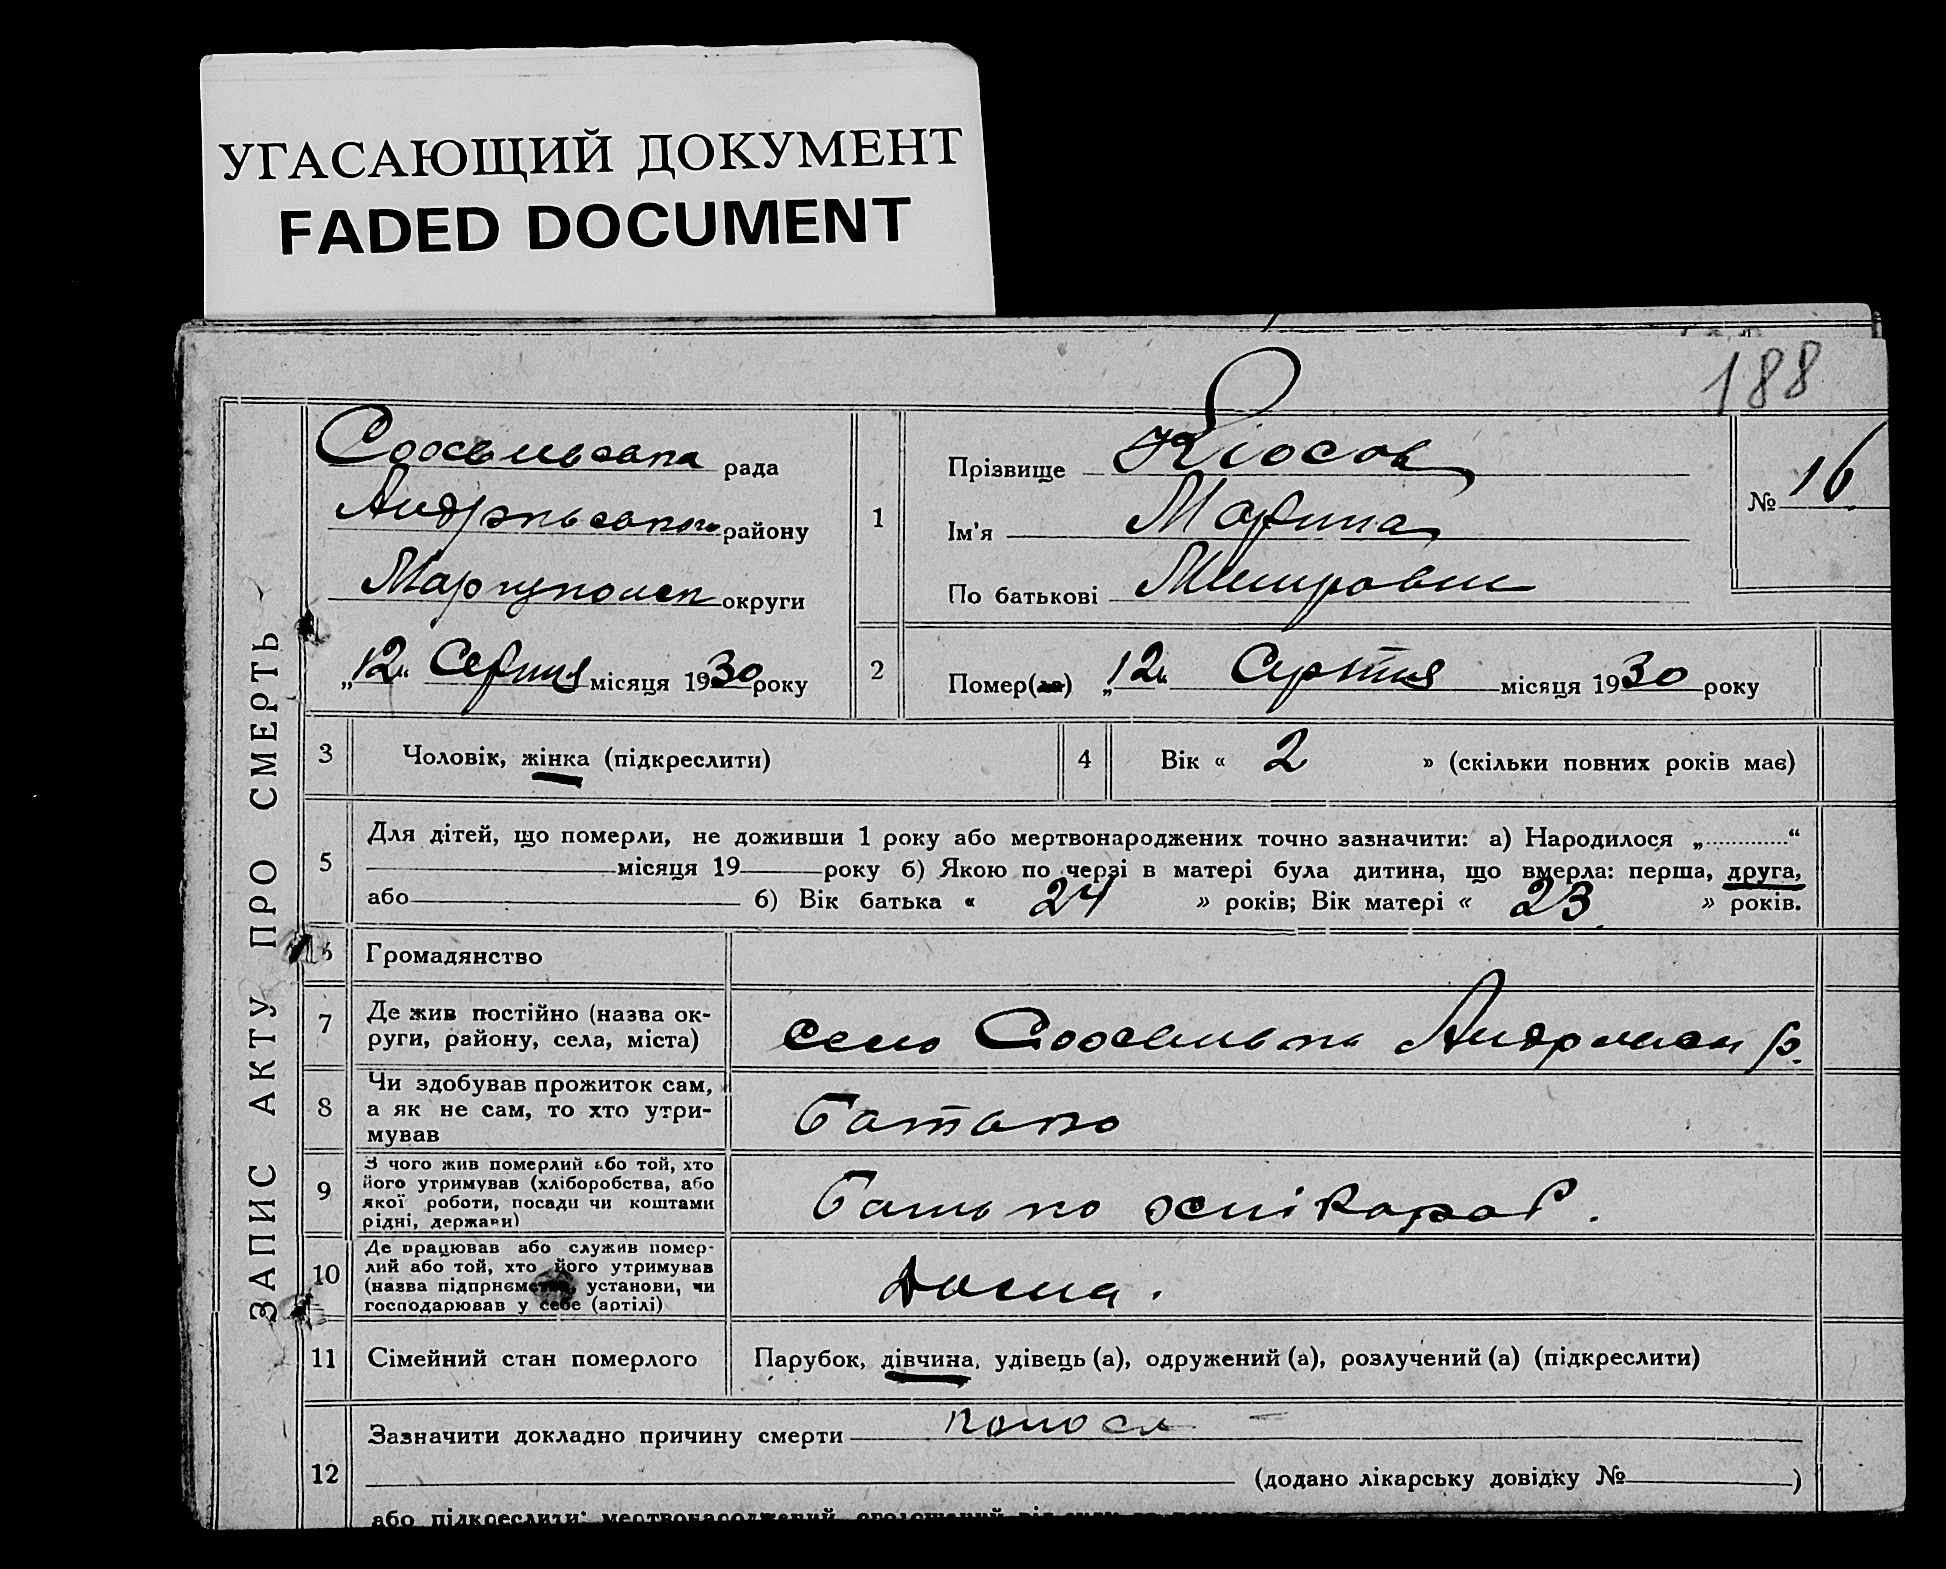 УГАСАЮЩИЙ ДОКУМЕНТ
FADED DOCUMENT
188
ЗАПИС АКТУ ПРО СМЕРТЬ
рада
району
округи
„12“ Серпня місяця 1930 року
1
Прізвище Кіосов
Ім'я Марина
По батькові
№ 16
2
Помер(ла) „12“ Серпня місяця 1930 року
3
Чоловік, жінка (підкреслити)
4
Вік « 2 » (скільки повних років має)
5
Для дітей, що померли, не доживши 1 року або мертвонароджених точно зазначити: а) Народилося „............“
місяця 19 року б) Якою по черзі в матері була дитина, що вмерла: перша, друга,
або б) Вік батька « 24 » років; Вік матері « 23 » років.
6
Громадянство
7
Де жив постійно (назва ок-
руги, району, села, міста)
село
р.
8
Чи здобував прожиток сам,
а як не сам, то хто утри-
мував
Батько
9
З чого жив померлий або той, хто
його утримував (хліборобства, або
якої роботи, посади чи коштами
рідні, держави)
Батько
10
Де працював або служив помер-
лий або той, хто його утримував
(назва підприємства, установи, чи
господарював у себе (артілі)
Дома.
11
Сімейний стан померлого
Парубок, дівчина, удівець (а), одружений (а), розлучений (а) (підкреслити)
12
Зазначити докладно причину смерти
(додано лікарську довідку № )
або підкреслити: мертвонароджений,